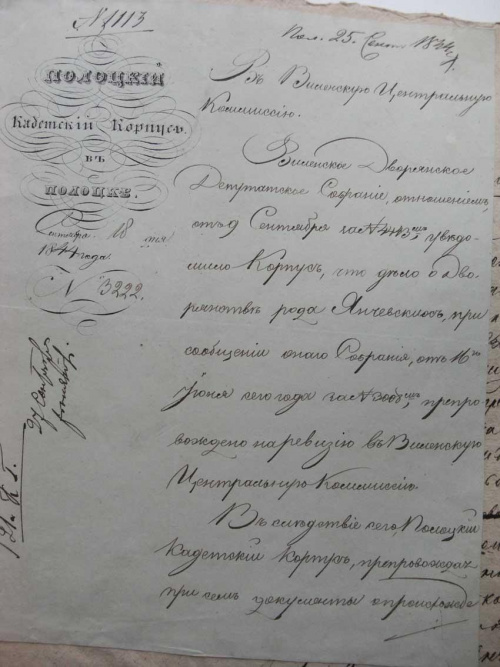 № 1113
Пол. 25. Сент. 1844 г.
ПОЛОЦКІЙ
Кадетскій Корпусъ
въ
ПОЛОЦКѢ.
Сентября 18 дня
1844 года
№ 3222.
Въ Виленскую Центральную
Коммиссію.
Виленское Дворянское
Депутатское Собраніе, отношеніемъ
отъ 9 Сентября за № 4443мъ, увѣдо-
мило Корпусъ, что дѣло о Дво-
рянствѣ рода Янчевскихъ, при
сообщеніи онаго Собранія, отъ 16го
Іюня сего года за № 3068мъ, препро-
вождено на ревизію въ Виленскую
Центральную Коммиссію.
Въ слѣдствіе сего, Полоцкій
Кадетскій Корпусъ, препровождая
при семъ документы о происхожде-